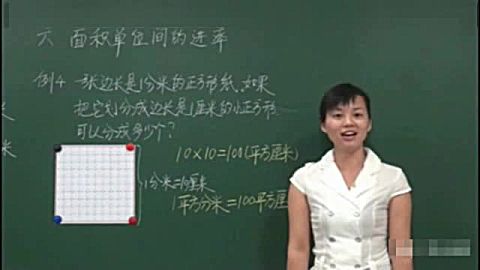 六 面积单位间的进率
例4 一张边长是1分米的正方形纸,如果
把它划分成边长是1厘米的小正方形,
可以分成多少个?
10×10=100(平方厘米)
1分米=10厘米
1平方分米=100平方厘
米